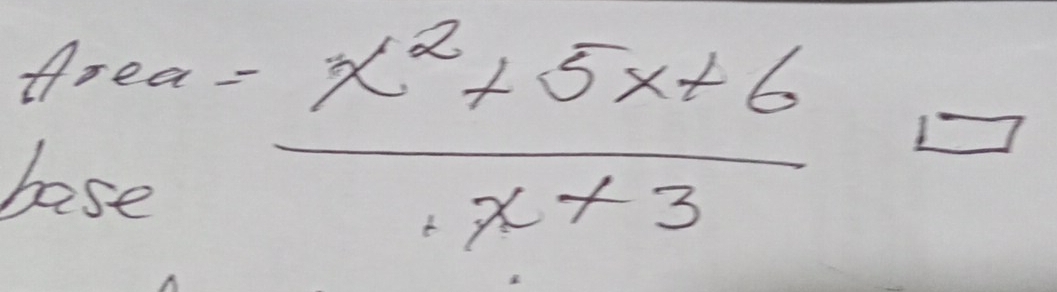 Area = x² + 5x + 6
base x + 3